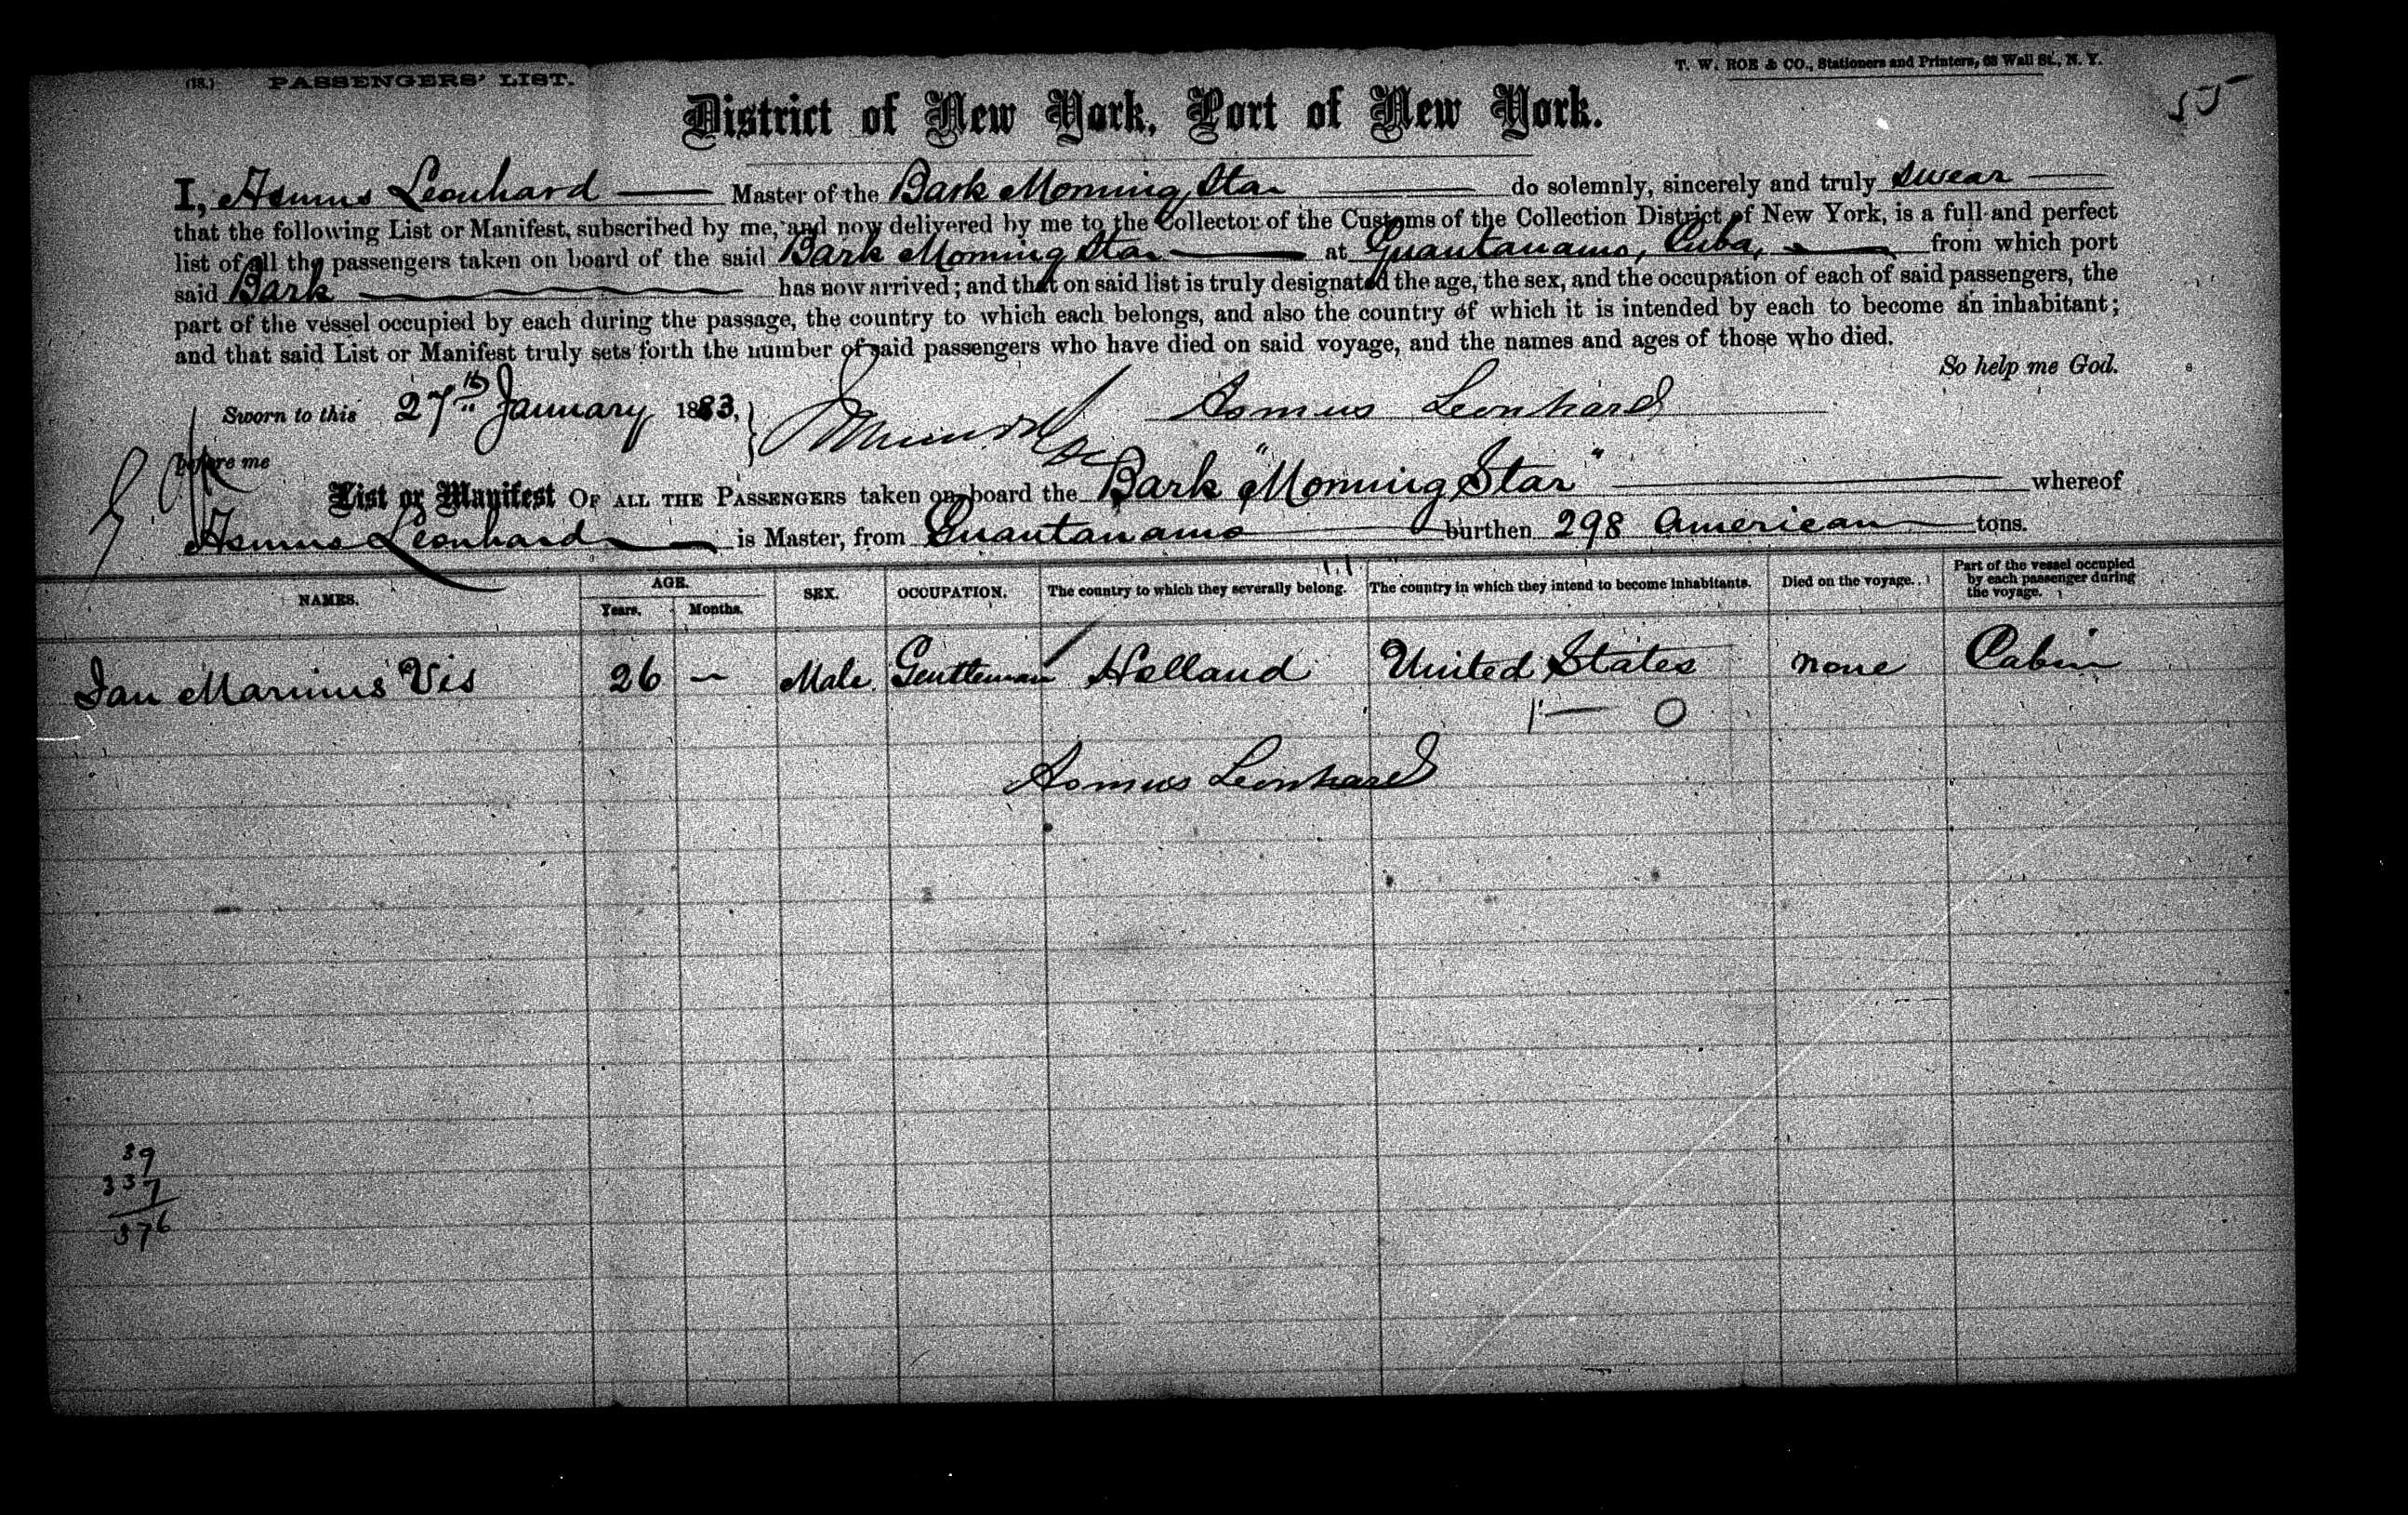 (18.) PASSENGERS' LIST.
T. W. ROE & CO., Stationers and Printers, 63 Wall St., N. Y.
55
District of New York, Port of New York.
I, Asmus Leonhard Master of the Bark Morning Star do solemnly, sincerely and truly swear
that the following List or Manifest, subscribed by me, and now delivered by me to the Collector of the Customs of the Collection District of New York, is a full and perfect
list of all the passengers taken on board of the said Bark Morning Star at Guantanamo, Cuba, from which port
said Bark has now arrived; and that on said list is truly designated the age, the sex, and the occupation of each of said passengers, the
part of the vessel occupied by each during the passage, the country to which each belongs, and also the country of which it is intended by each to become an inhabitant;
and that said List or Manifest truly sets forth the number of said passengers who have died on said voyage, and the names and ages of those who died.
So help me God.
Sworn to this 27th January 1883, Asmus Leonhard
before me
List or Manifest OF ALL THE PASSENGERS taken on board the Bark "Morning Star" whereof
Asmus Leonhard is Master, from Guantanamo burthen 298 American tons.
NAMES. AGE. Years. Months. SEX. OCCUPATION. The country to which they severally belong. The country in which they intend to become inhabitants. Died on the voyage. Part of the vessel occupied by each passenger during the voyage.
Jan Marinus Vis 26 — Male Gentleman Holland United States none Cabin
1 — 0
Asmus Leonhard
39
337
376